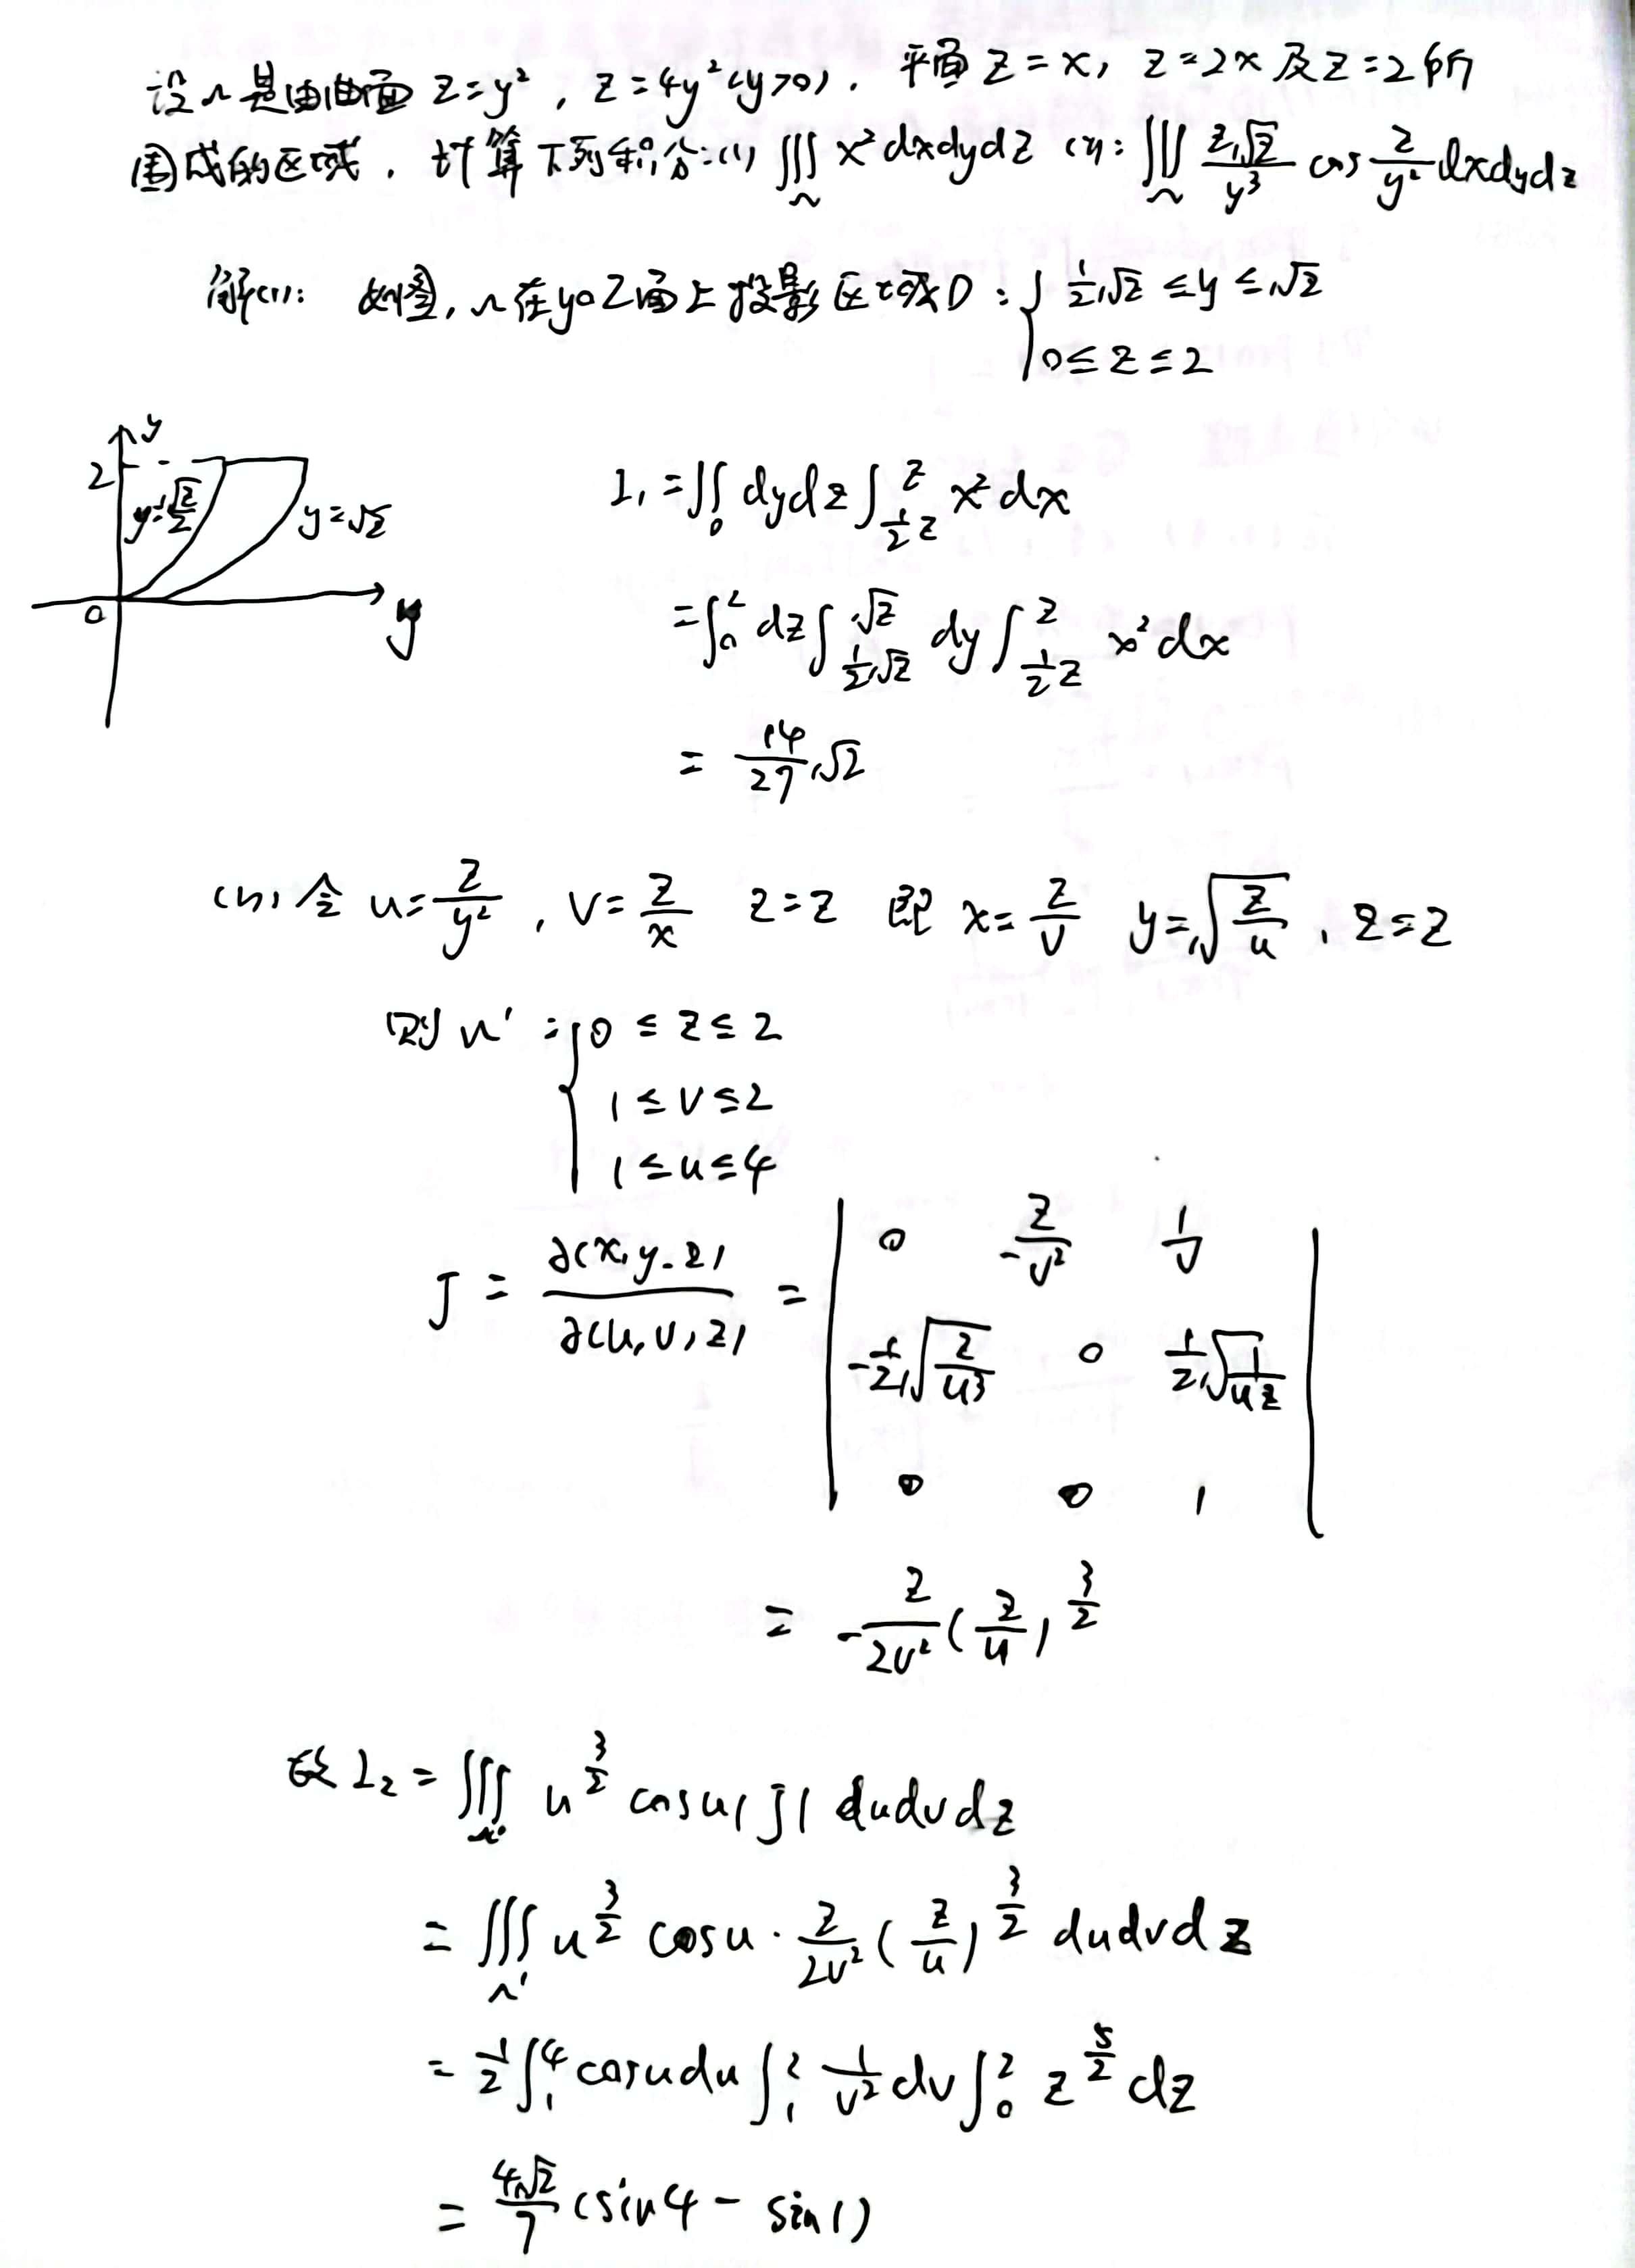 设Ω是由曲面 z=y², z=4y²(y>0), 平面 z=x, z=2x及z=2所
围成的区域, 计算下列积分:(1) ∭_Ω x²dxdydz (2): ∭_Ω z√z/y³ cos z/y² dxdydz
解(1): 如图,Ω在yoz面上投影区域D: { ½√z ≤ y ≤ √z
0 ≤ z ≤ 2
y
2
y=√z/2
y=√z
0
y
I₁ = ∬_D dydz ∫_{½z}^{z} x²dx
= ∫_0^2 dz ∫_{½√z}^{√z} dy ∫_{½z}^{z} x²dx
= 14/27 √2
(2) 令 u=z/y², v=z/x z=z 即 x=z/v y=√(z/u), z=z
则Ω': { 0 ≤ z ≤ 2
1 ≤ v ≤ 2
1 ≤ u ≤ 4
J = ∂(x,y,z)/∂(u,v,z) = | 0 -z/v² 1/v |
| -½√(z/u³) 0 ½√(1/uz) |
| 0 0 1 |
= -z/2v² (z/u)^{3/2}
故 I₂ = ∭_{Ω'} u^{3/2} cosu |J| dudvdz
= ∭_{Ω'} u^{3/2} cosu · z/2v² (z/u)^{3/2} dudvdz
= ½ ∫_1^4 cosudu ∫_1^2 1/v² dv ∫_0^2 z^{5/2} dz
= 4√2/7 (sin4 - sin1)